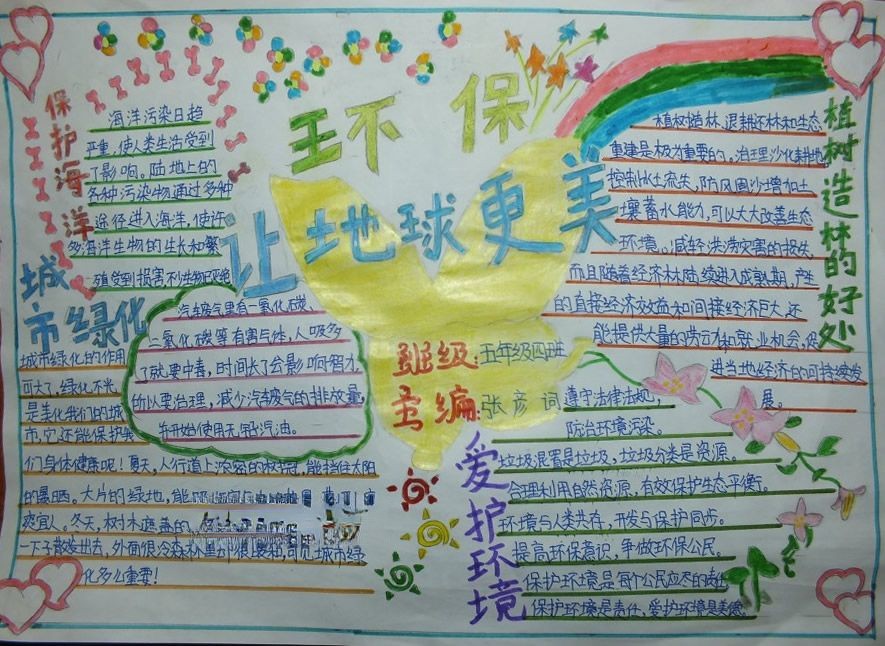 王不保
让地球更美
保护海洋
海洋污染日趋
严重,使人类生活受到
了影响。陆地上的
各种污染物通过多种
途径进入海洋,使许
多海洋生物的生长和繁
殖受到损害不少生物已死绝
城市绿化
城市绿化的作用
可大了,绿化不光
是美化我们的城
市,它还能保护我
们身体健康呢!夏天,人行道上浓密的树冠,能挡住太阳
的暴晒。大片的绿地,能
爽宜人。冬天,树木遮盖的
一下子散发出去,外面很冷森林里却很暖和,可见城市绿
化多么重要!
汽车废气里有一氧化碳、
二氧化碳等有害气体,人吸多
了就要中毒,时间长了会影响智力
所以要治理,减少汽车废气的排放量,
并开始使用无铅汽油。
班级:五年级四班
主编:张彦词
植树造林的好处
植树造林,退耕还林和生态
重建是极为重要的。治理沙化耕地
控制水土流失,防风固沙增加土
壤蓄水能力,可以大大改善生态
环境。减轻洪涝灾害的损失,
而且随着经济林陆续进入成熟期,产
的直接经济效益和间接经济巨大,还
能提供大量的劳动和就业机会,促
进当地经济的可持续发
展。
爱护环境
遵守法律法规,
防治环境污染。
垃圾混置是垃圾,垃圾分类是资源。
合理利用自然资源,有效保护生态平衡。
环境与人类共存,开发与保护同步。
提高环保意识,争做环保公民。
保护环境是每个公民应尽的责任
保护环境是责任,爱护环境是美德。